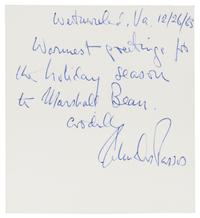 Westmoreland, Va. 12/26/65
Warmest greetings for
the holiday season
to Marshall Bean.
cordially
John Dos Passos